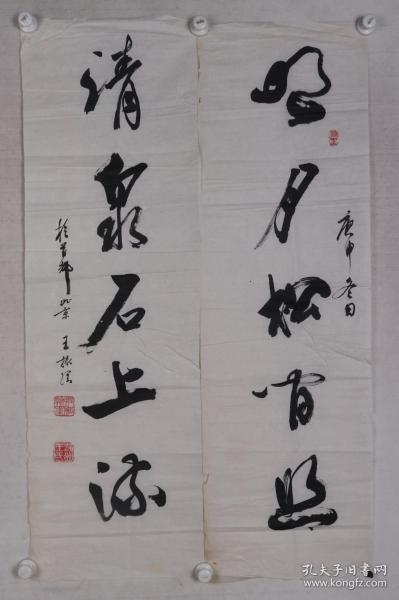 明月松间照
庚申冬日
清泉石上流
於首都北京 王振
孔夫子旧书网
www.kongfz.com